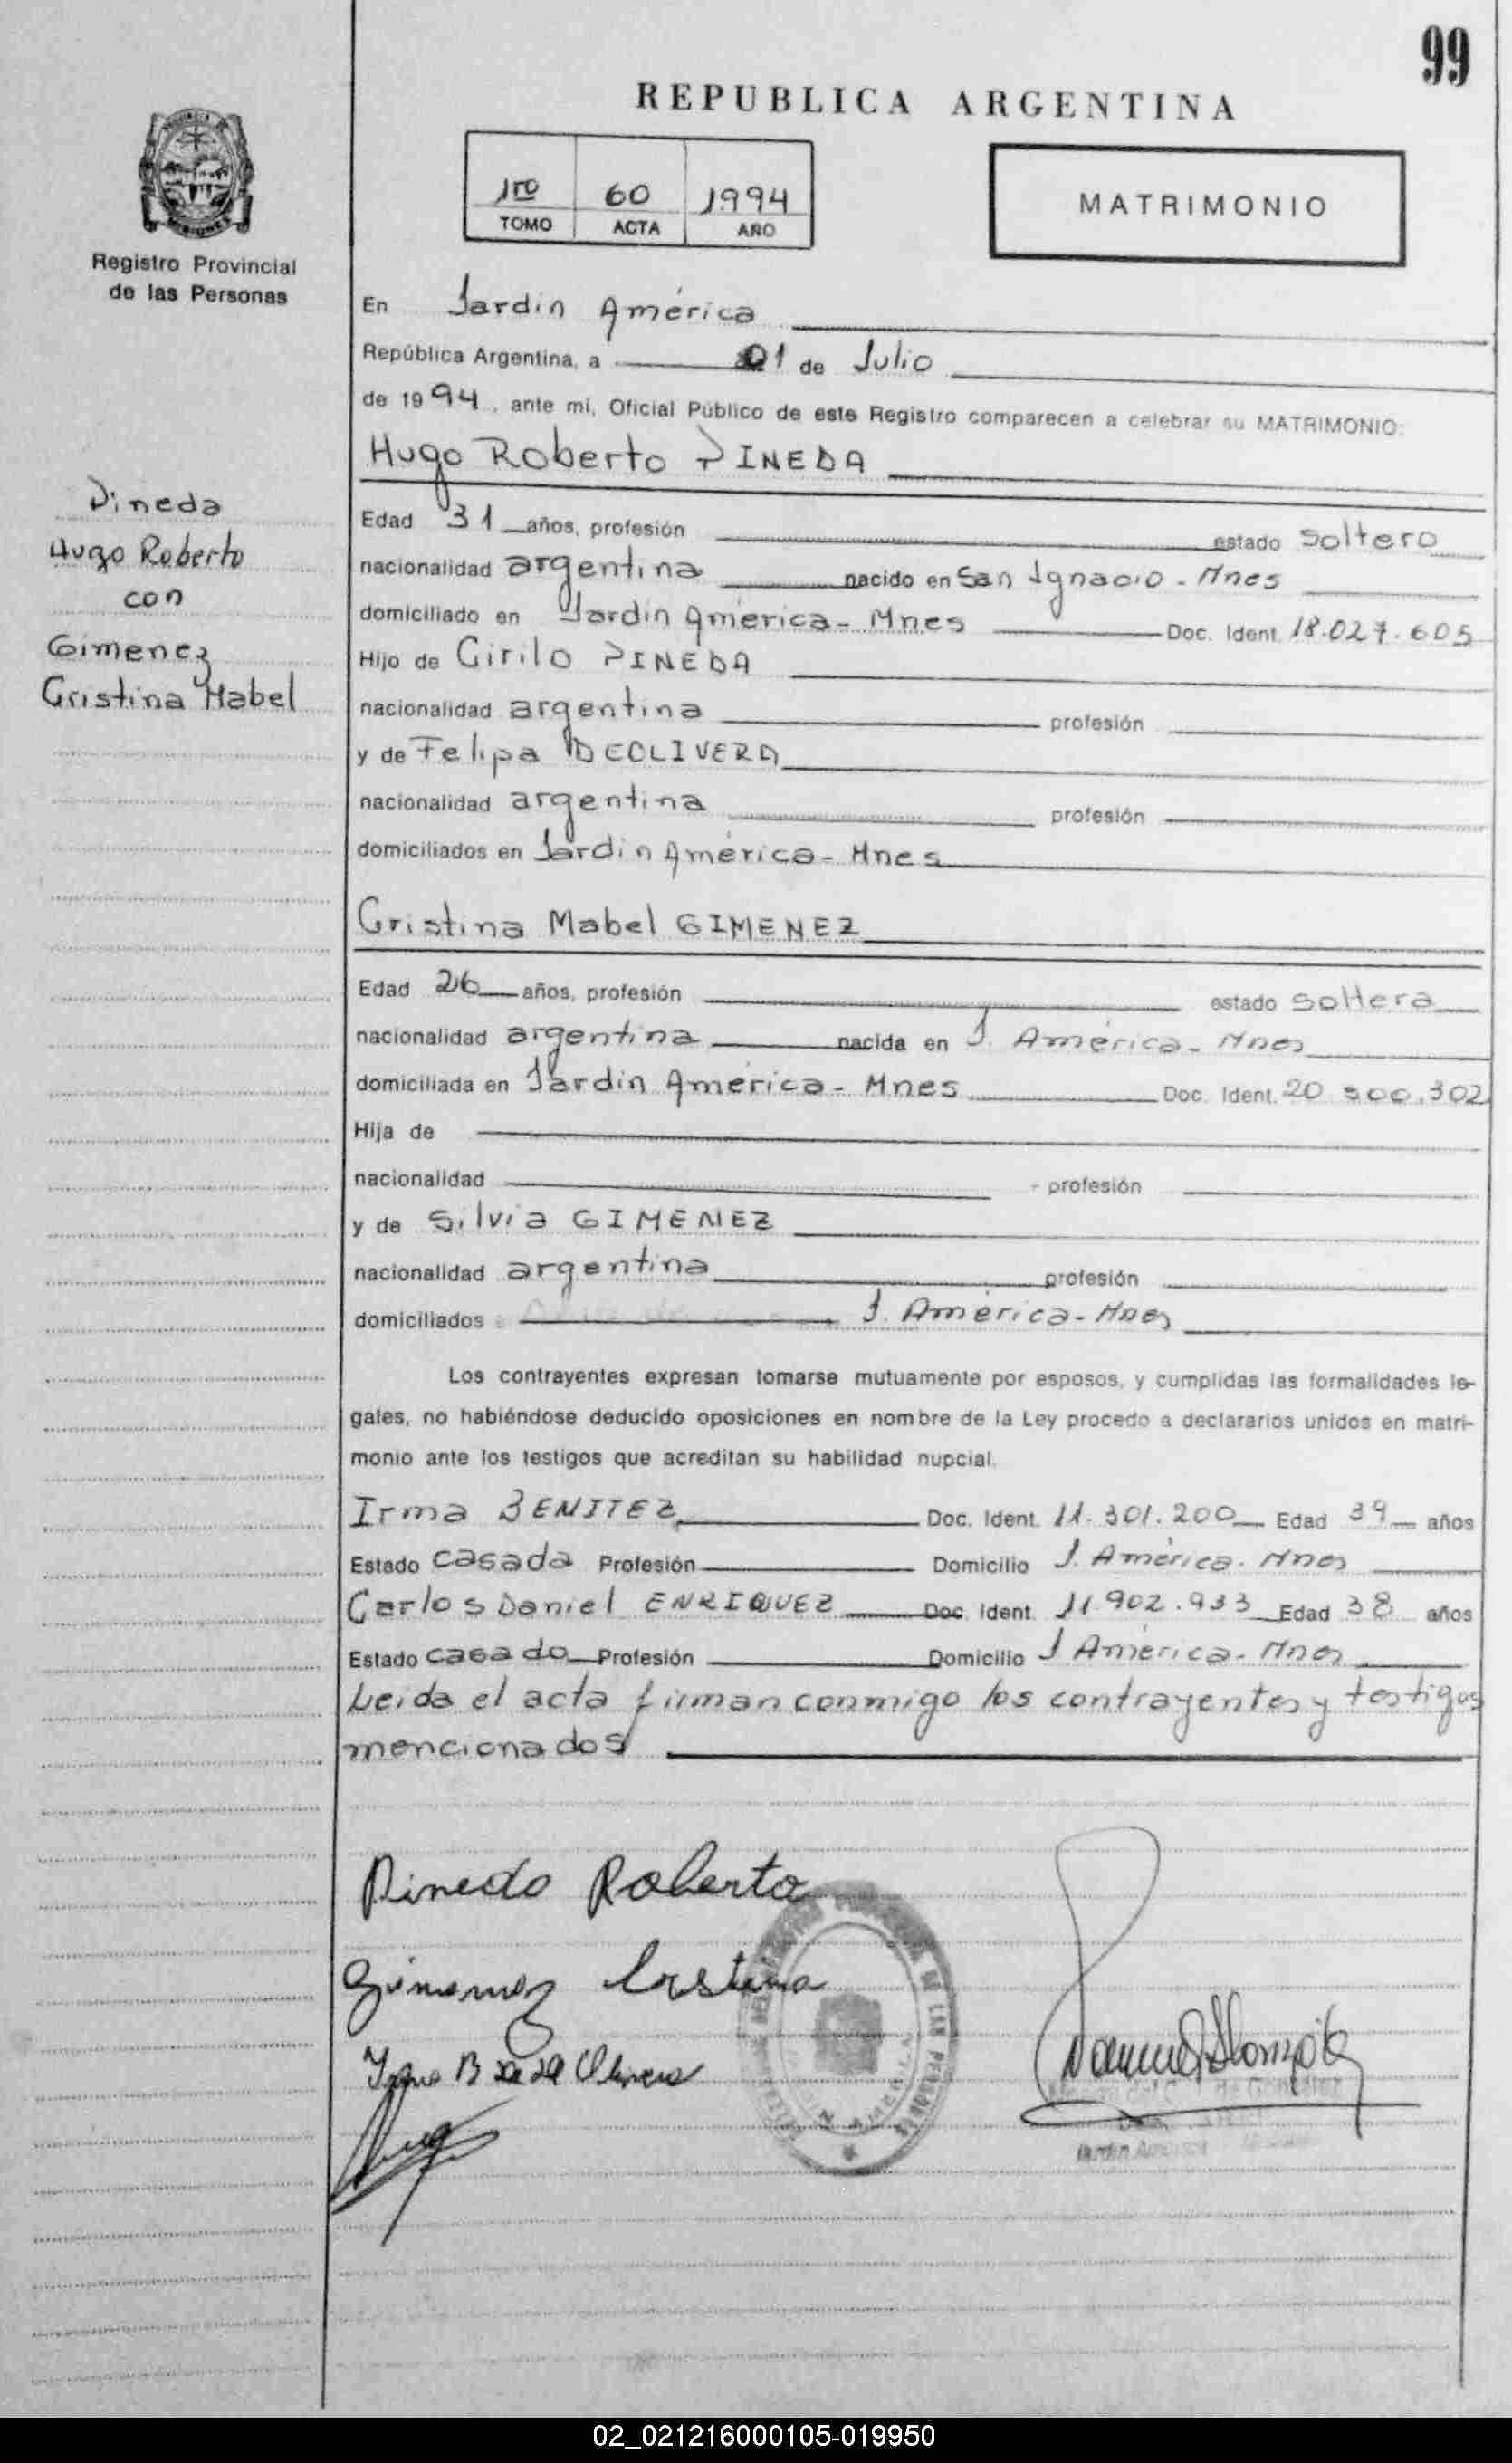 99
REPUBLICA ARGENTINA
1ro 60 1994
TOMO ACTA AÑO
MATRIMONIO
Registro Provincial
de las Personas
Pineda
Hugo Roberto
con
Gimenez
Cristina Mabel
En Jardín América
República Argentina, a 01 de Julio
de 1994, ante mí, Oficial Público de este Registro comparecen a celebrar su MATRIMONIO:
Hugo Roberto PINEDA
Edad 31 años, profesión estado soltero
nacionalidad argentina nacido en San Ignacio - Mnes
domiciliado en Jardín América - Mnes Doc. Ident. 18.027.605
Hijo de Cirilo PINEDA
nacionalidad argentina profesión
y de Felipa DEOLIVERA
nacionalidad argentina profesión
domiciliados en Jardín América - Mnes
Cristina Mabel GIMENEZ
Edad 26 años, profesión estado soltera
nacionalidad argentina nacida en J. América - Mnes
domiciliada en Jardín América - Mnes Doc. Ident. 20 500.302
Hija de
nacionalidad profesión
y de Silvia GIMENEZ
nacionalidad argentina profesión
domiciliados J. América - Mnes
Los contrayentes expresan tomarse mutuamente por esposos, y cumplidas las formalidades le-
gales, no habiéndose deducido oposiciones en nombre de la Ley procedo a declararlos unidos en matri-
monio ante los testigos que acreditan su habilidad nupcial.
Irma BENITEZ Doc. Ident. 11.301.200 Edad 39 años
Estado casada Profesión Domicilio J. América - Mnes
Carlos Daniel ENRIQUEZ Doc. Ident. 11.902.933 Edad 38 años
Estado casado Profesión Domicilio J América - Mnes
Leída el acta firman conmigo los contrayentes y testigos
mencionados
Pinedo Roberto
Gimenez Cristina
02_021216000105-019950